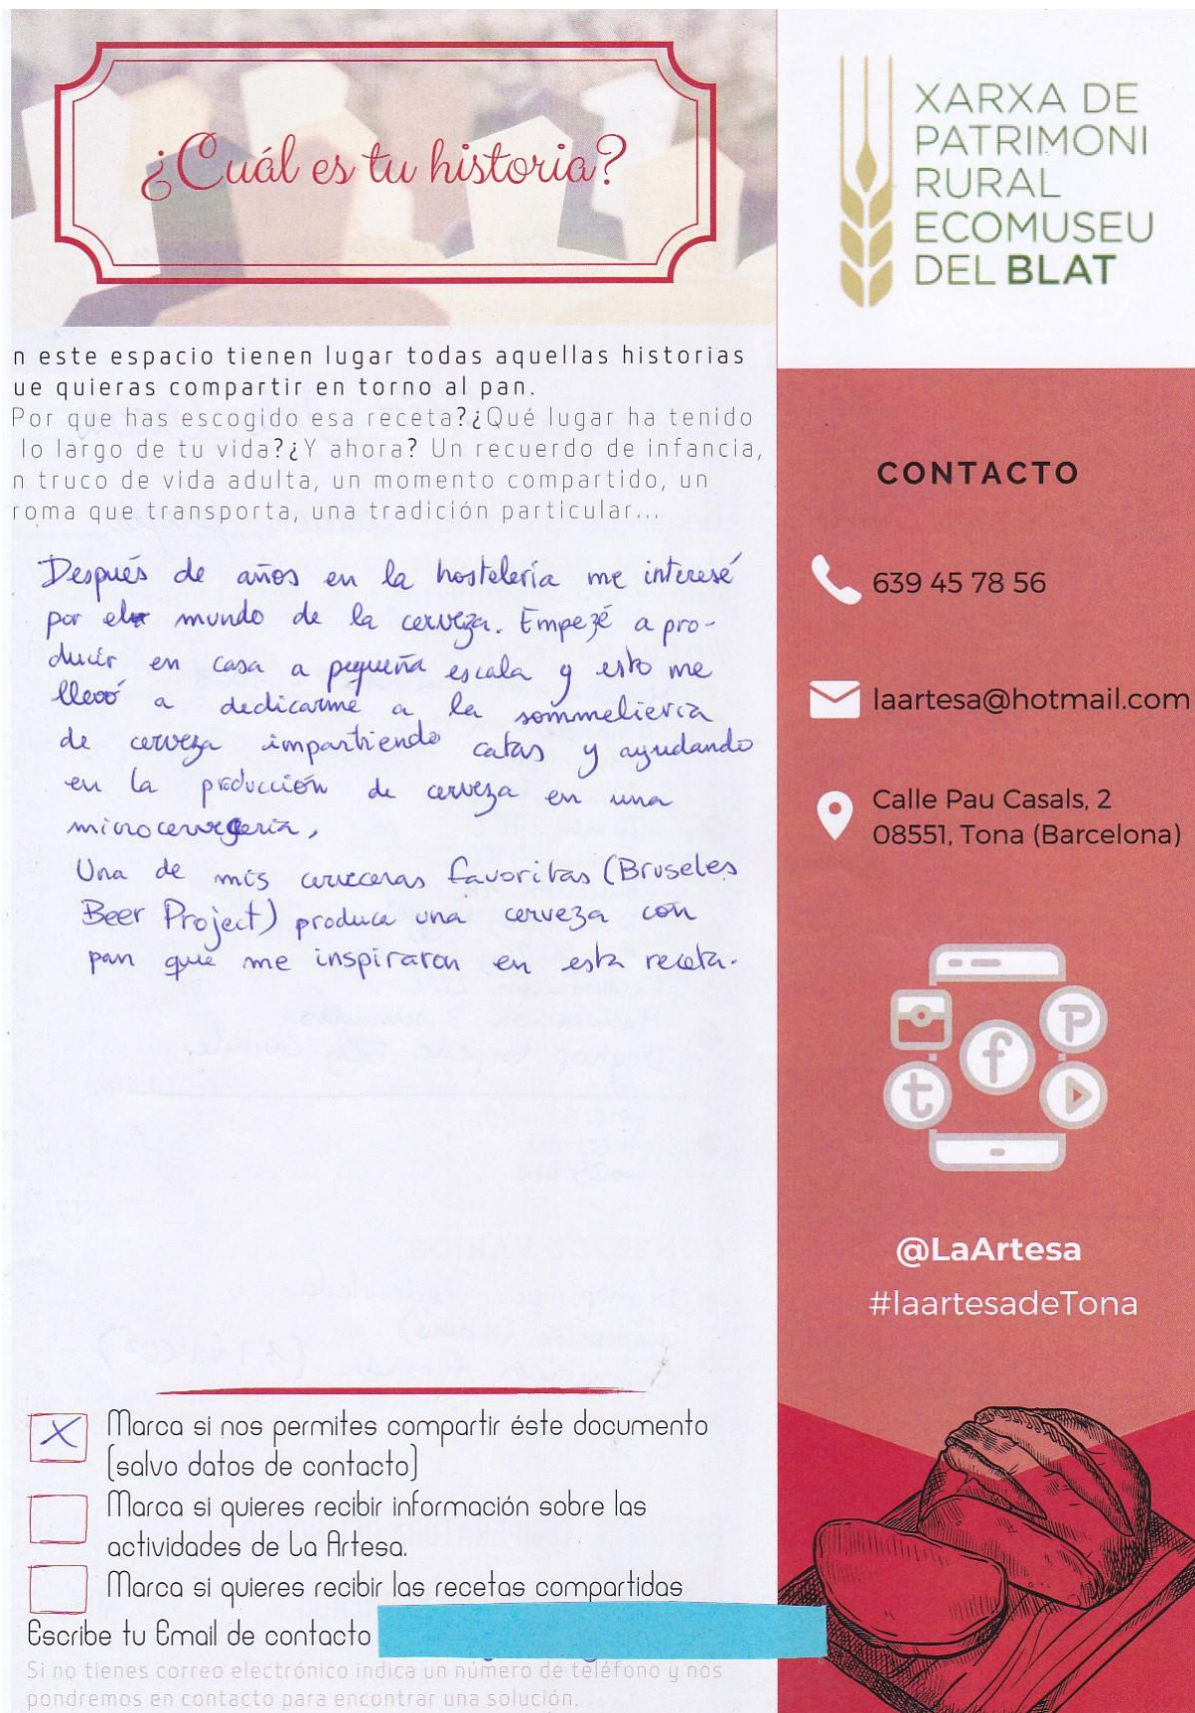 ¿Cuál es tu historia?
n este espacio tienen lugar todas aquellas historias
ue quieras compartir en torno al pan.
Por que has escogido esa receta?¿Qué lugar ha tenido
lo largo de tu vida?¿Y ahora? Un recuerdo de infancia,
n truco de vida adulta, un momento compartido, un
roma que transporta, una tradición particular...
Después de años en la hostelería me interesé
por el mundo de la cerveza. Empezé a pro-
ducir en casa a pequeña escala y esto me
llevó a dedicarme a la sommelieria
de cerveza impartiendo catas y ayudando
en la producción de cerveza en una
microcervecería,
Una de mis cerveceras favoritas (Bruseles
Beer Project) produce una cerveza con
pan que me inspiraron en esta receta.
Marca si nos permites compartir éste documento
(salvo datos de contacto)
Marca si quieres recibir información sobre las
actividades de La Artesa.
Marca si quieres recibir las recetas compartidas
Escribe tu Email de contacto
Si no tienes correo electrónico indica un número de teléfono y nos
pondremos en contacto para encontrar una solución.
XARXA DE
PATRIMONI
RURAL
ECOMUSEU
DEL BLAT
CONTACTO
639 45 78 56
laartesa@hotmail.com
Calle Pau Casals, 2
08551, Tona (Barcelona)
@LaArtesa
#laartesadeTona